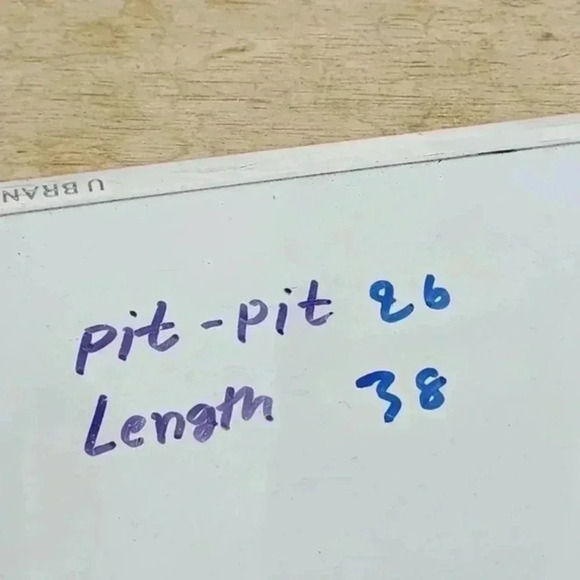 UBRAN
pit-pit 26
Length 38